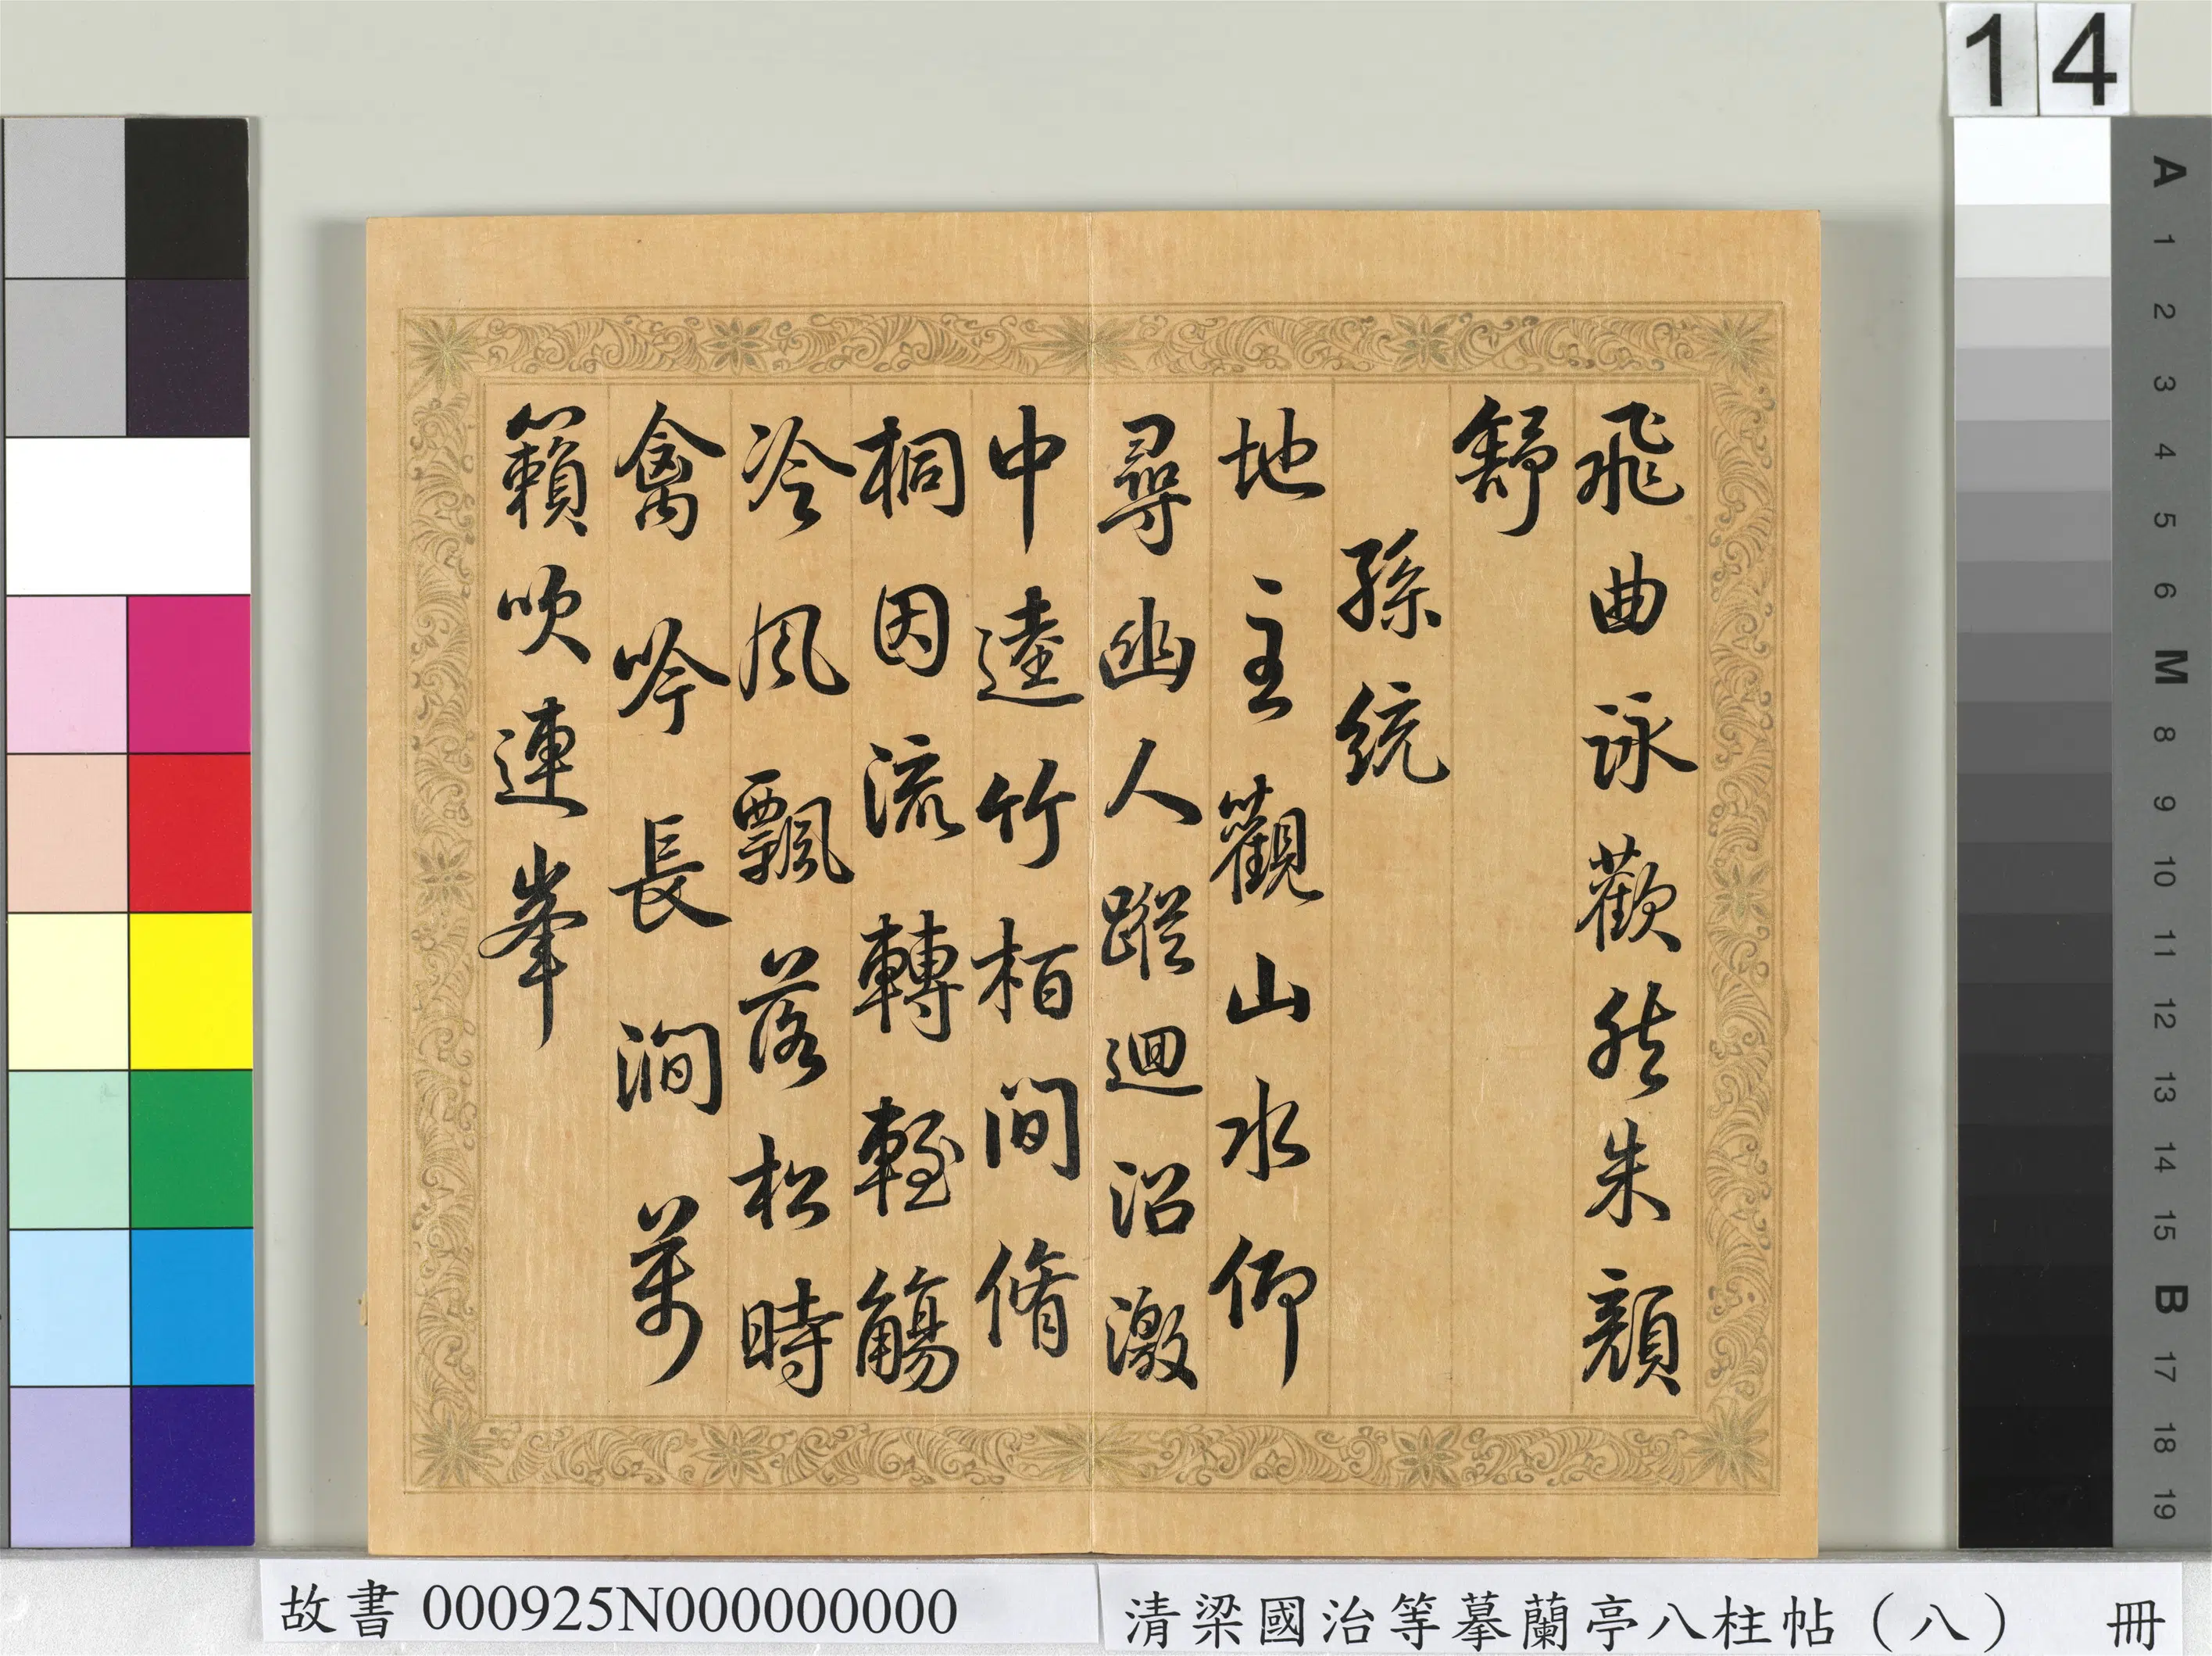 飛曲詠歡然朱顏
舒
孫統
地主觀山水仰
尋幽人蹤迴沼激
中逵竹柏間脩
桐因流轉輕觴
冷風飄落松時
禽吟長澗萬
籟吹連峯
14
A
1
2
3
4
5
6
M
8
9
10
11
12
13
14
15
B
17
18
19
故書 000925N000000000
清梁國治等摹蘭亭八柱帖（八） 冊